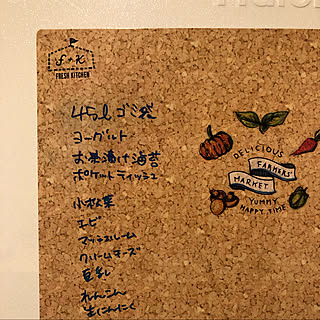 S & K
FRESH KITCHEN
45ℓ ゴミ袋
ヨーグルト
お茶漬け海苔
ポケットティッシュ
小松菜
エビ
マッシュルーム
クリームチーズ
豆乳
れんこん
生にんにく
DELICIOUS
FARMERS'
MARKET
YUMMY
HAPPY TIME